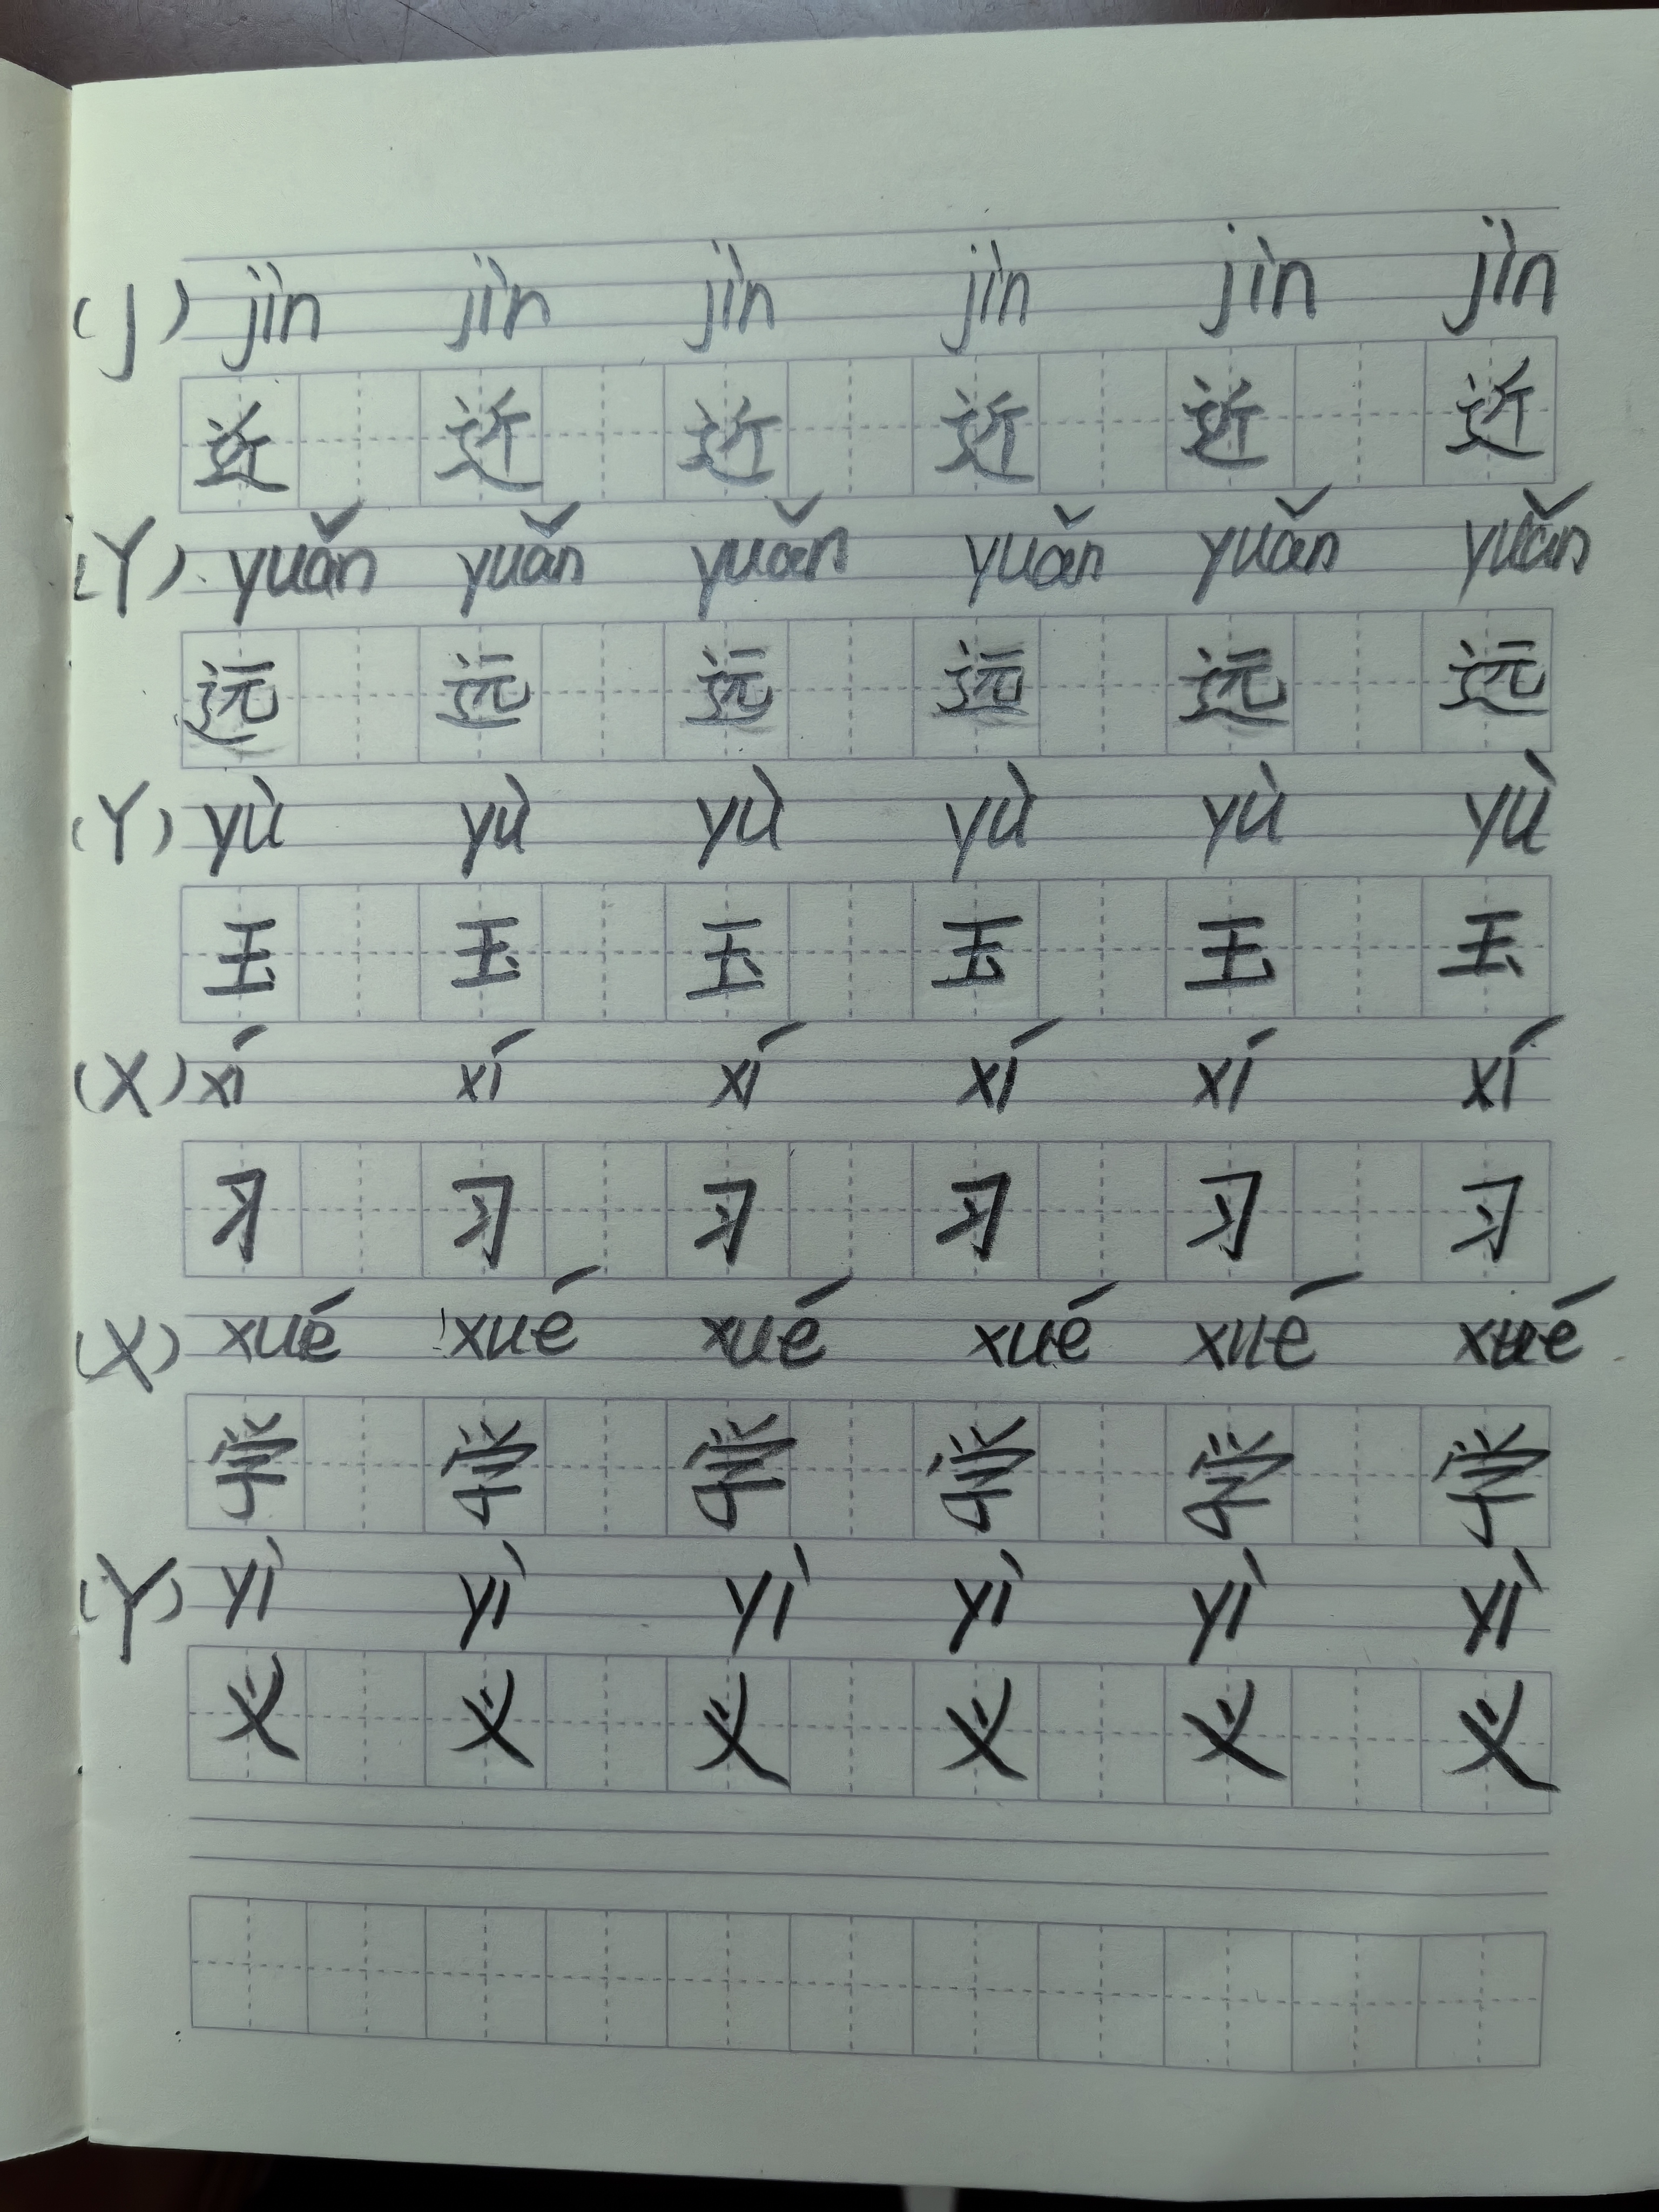 (J) jìn jìn jìn jìn jìn jìn
近 近 近 近 近 近
(Y) yuǎn yuǎn yuǎn yuǎn yuǎn yuǎn
远 远 远 远 远 远
(Y) yù yù yù yù yù yù
玉 玉 玉 玉 玉 玉
(X) xí xí xí xí xí xí
习 习 习 习 习 习
(X) xué xué xué xué xué xué
学 学 学 学 学 学
(Y) yì yì yì yì yì yì
义 义 义 义 义 义